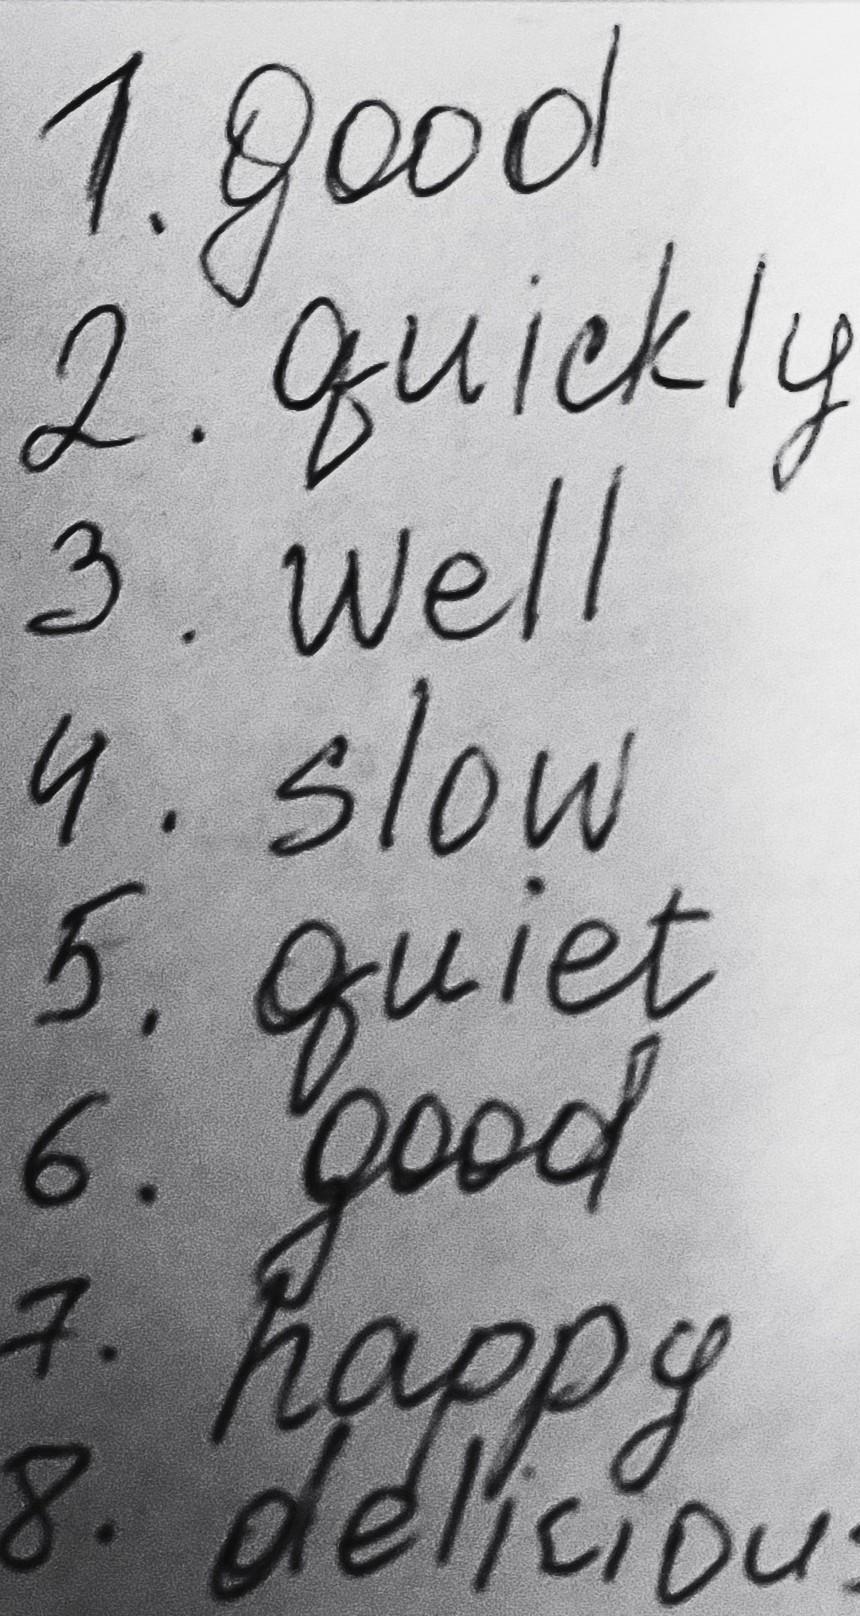 1. good
2. quickly
3. well
4. slow
5. quiet
6. good
7. happy
8. delicious